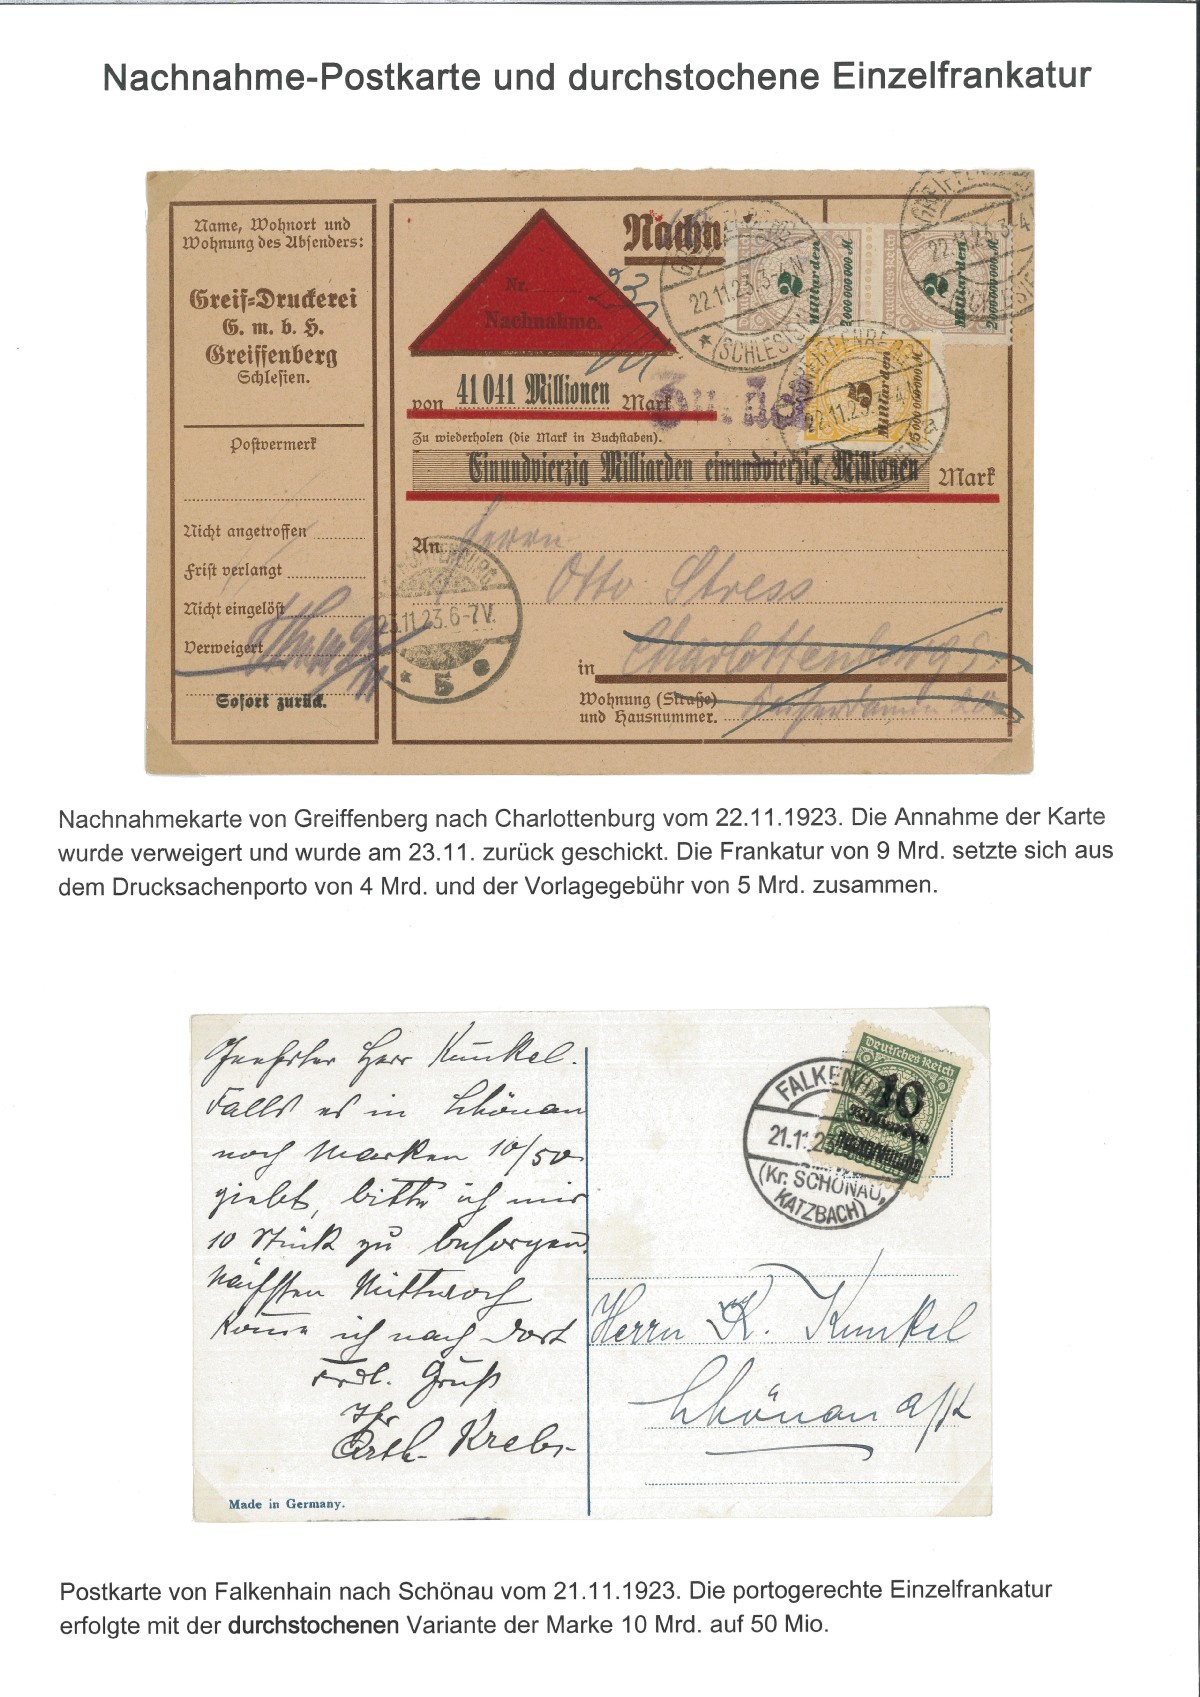 Nachnahme-Postkarte und durchstochene Einzelfrankatur
Name, Wohnort und
Wohnung des Absenders:
Greif-Druckerei
G. m. b. H.
Greiffenberg
Schlesien.
Postvermerk
Nicht angetroffen
Frist verlangt
Nicht eingelöst
Verweigert
Sofort zurück.
Nachn
Nr.
Nachnahme.
22.11.23.3-4N
(SCHLESIEN)
2 Milliarden
2000000000 M
2 Milliarden
2000000000 M
22.11.23.3-4N
5 Milliarden
22.11.23.3-4N
von 41 041 Millionen Mark
Zurück
Zu wiederholen (die Mark in Buchstaben).
Einundvierzig Milliarden einundvierzig Millionen Mark
An Herrn
Otto Stress
in Charlottenburg 5
Wohnung (Straße)
und Hausnummer. Kaiserdamm
CHARLOTTENBURG
23.11.23.6-7V.
* 5 e
Nachnahmekarte von Greiffenberg nach Charlottenburg vom 22.11.1923. Die Annahme der Karte
wurde verweigert und wurde am 23.11. zurück geschickt. Die Frankatur von 9 Mrd. setzte sich aus
dem Drucksachenporto von 4 Mrd. und der Vorlagegebühr von 5 Mrd. zusammen.
Geehrter Herr Kunkel.
Falls es in Schönau
noch Marken 10/50
giebt, bitte ich mir
10 Stück zu besorgen.
Nächsten Mittwoch
komme ich nach dort
Frdl. Gruß
Ihr
Arth. Krebs
Made in Germany.
Deutsches Reich
10
Milliarden
FALKENHAIN
21.11.23
(Kr. SCHÖNAU,
KATZBACH)
Herrn K. Kunkel
Schönau a/K
Postkarte von Falkenhain nach Schönau vom 21.11.1923. Die portogerechte Einzelfrankatur
erfolgte mit der durchstochenen Variante der Marke 10 Mrd. auf 50 Mio.